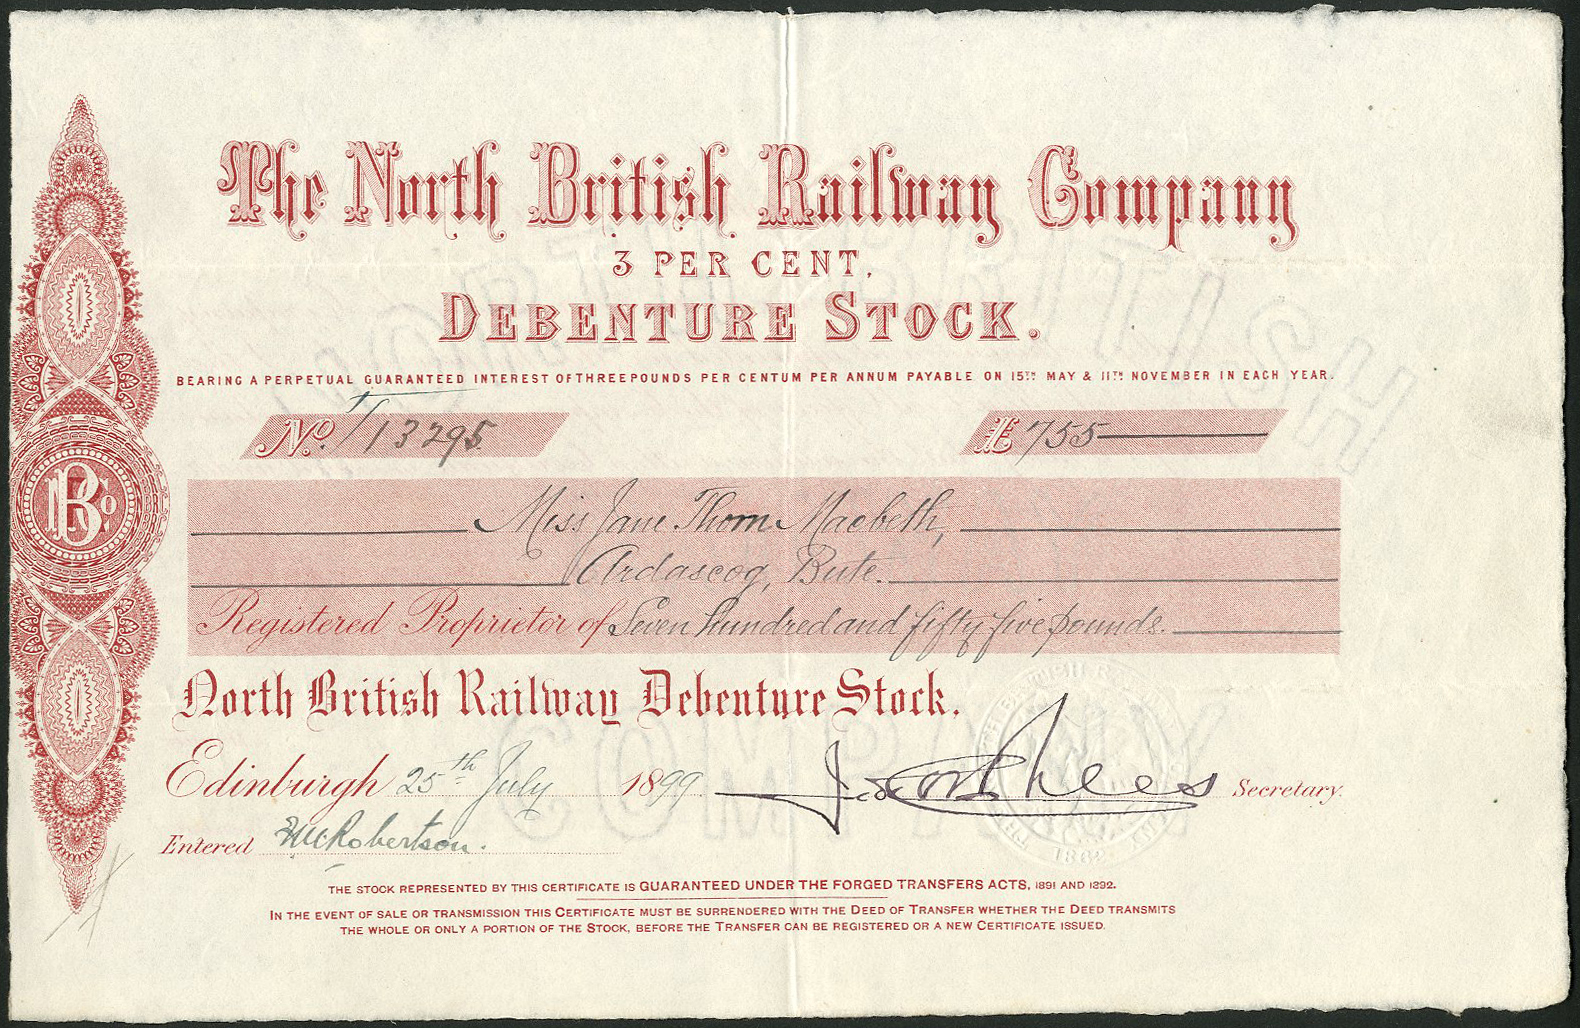 The North British Railway Company
3 PER CENT.
DEBENTURE STOCK.
BEARING A PERPETUAL GUARANTEED INTEREST OF THREE POUNDS PER CENTUM PER ANNUM PAYABLE ON 15TH MAY & 11TH NOVEMBER IN EACH YEAR.
No. 1/13295 £755
Miss Jane Thom Macbeth,
Ardascog, Bute.
Registered Proprietor of Seven hundred and fifty five pounds.
North British Railway Debenture Stock.
Edinburgh 25th July 1899 Secretary.
Entered McRobertson.
THE STOCK REPRESENTED BY THIS CERTIFICATE IS GUARANTEED UNDER THE FORGED TRANSFERS ACTS, 1891 AND 1892.
IN THE EVENT OF SALE OR TRANSMISSION THIS CERTIFICATE MUST BE SURRENDERED WITH THE DEED OF TRANSFER WHETHER THE DEED TRANSMITS
THE WHOLE OR ONLY A PORTION OF THE STOCK, BEFORE THE TRANSFER CAN BE REGISTERED OR A NEW CERTIFICATE ISSUED.